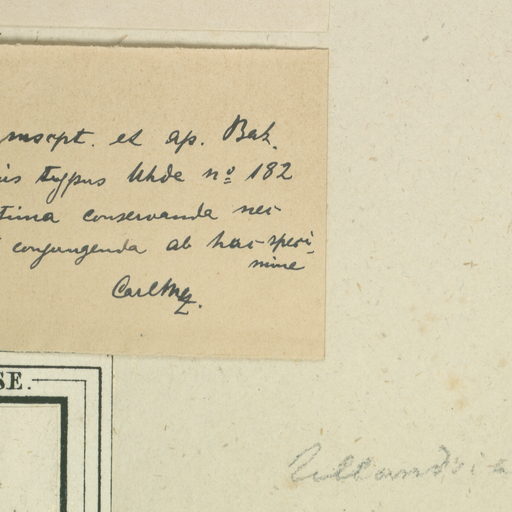 mscpt. et ap. Bak.
typus Uhde nº 182
conservanda nec
conjungenda ab hac speci-
mine
Carl Mez.
SE.
Tillandsia